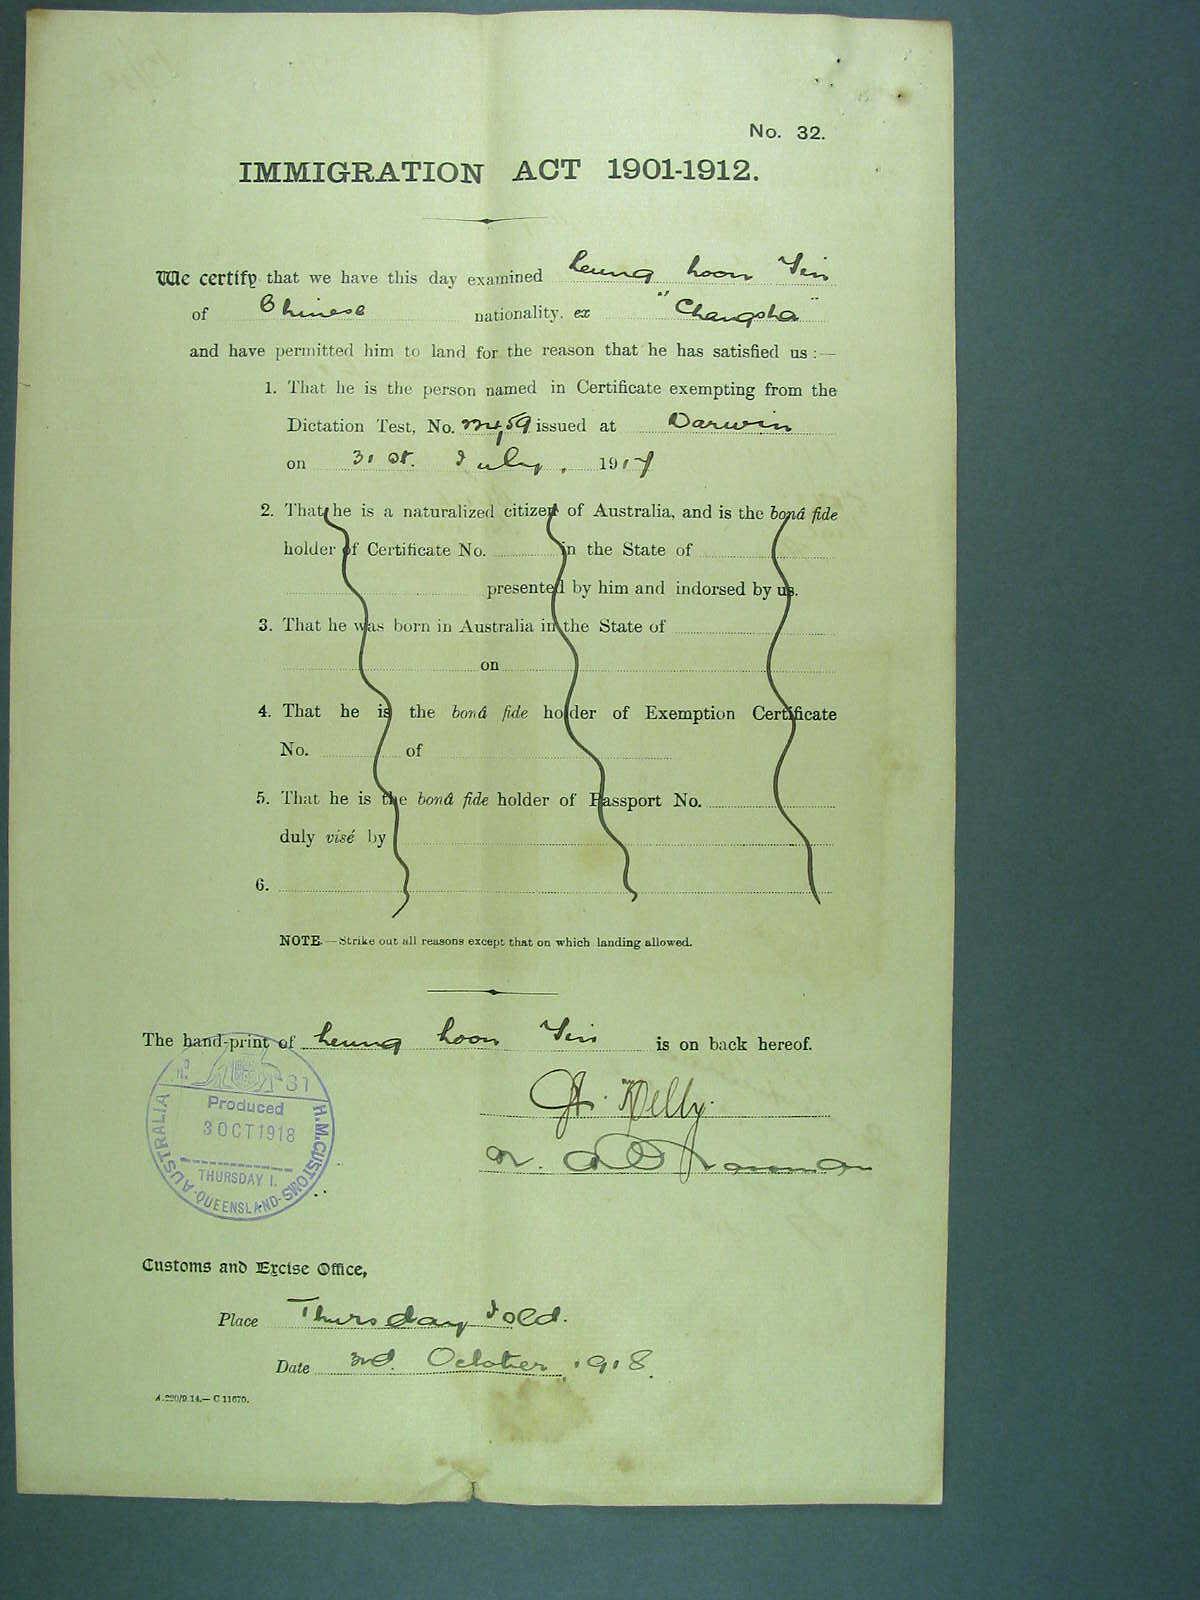 No. 32.
IMMIGRATION ACT 1901-1912.
We certify that we have this day examined Leung Loon Yin
of Chinese nationality. ex "Changsha"
and have permitted him to land for the reason that he has satisfied us :—
1. That he is the person named in Certificate exempting from the
Dictation Test, No. issued at Darwin
on 31st. July, 1917
2. That he is a naturalized citizen of Australia, and is the bonâ fide
holder of Certificate No. in the State of
presented by him and indorsed by us.
3. That he was born in Australia in the State of
on
4. That he is the bonâ fide holder of Exemption Certificate
No. of
5. That he is the bonâ fide holder of Passport No.
duly visé by
6.
NOTE.—Strike out all reasons except that on which landing allowed.
The hand-print of Leung Loon Yin is on back hereof.
No 31
Produced
3 OCT 1918
THURSDAY I.
AUSTRALIA · QUEENSLAND · H.M. CUSTOMS
Kelly.
Customs and Excise Office,
Place Thursday Isld.
Date 3rd. October 1918.
A.220/9.14.— C.11670.